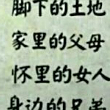 脚下的土地
家里的父母
怀里的女人
身边的兄弟